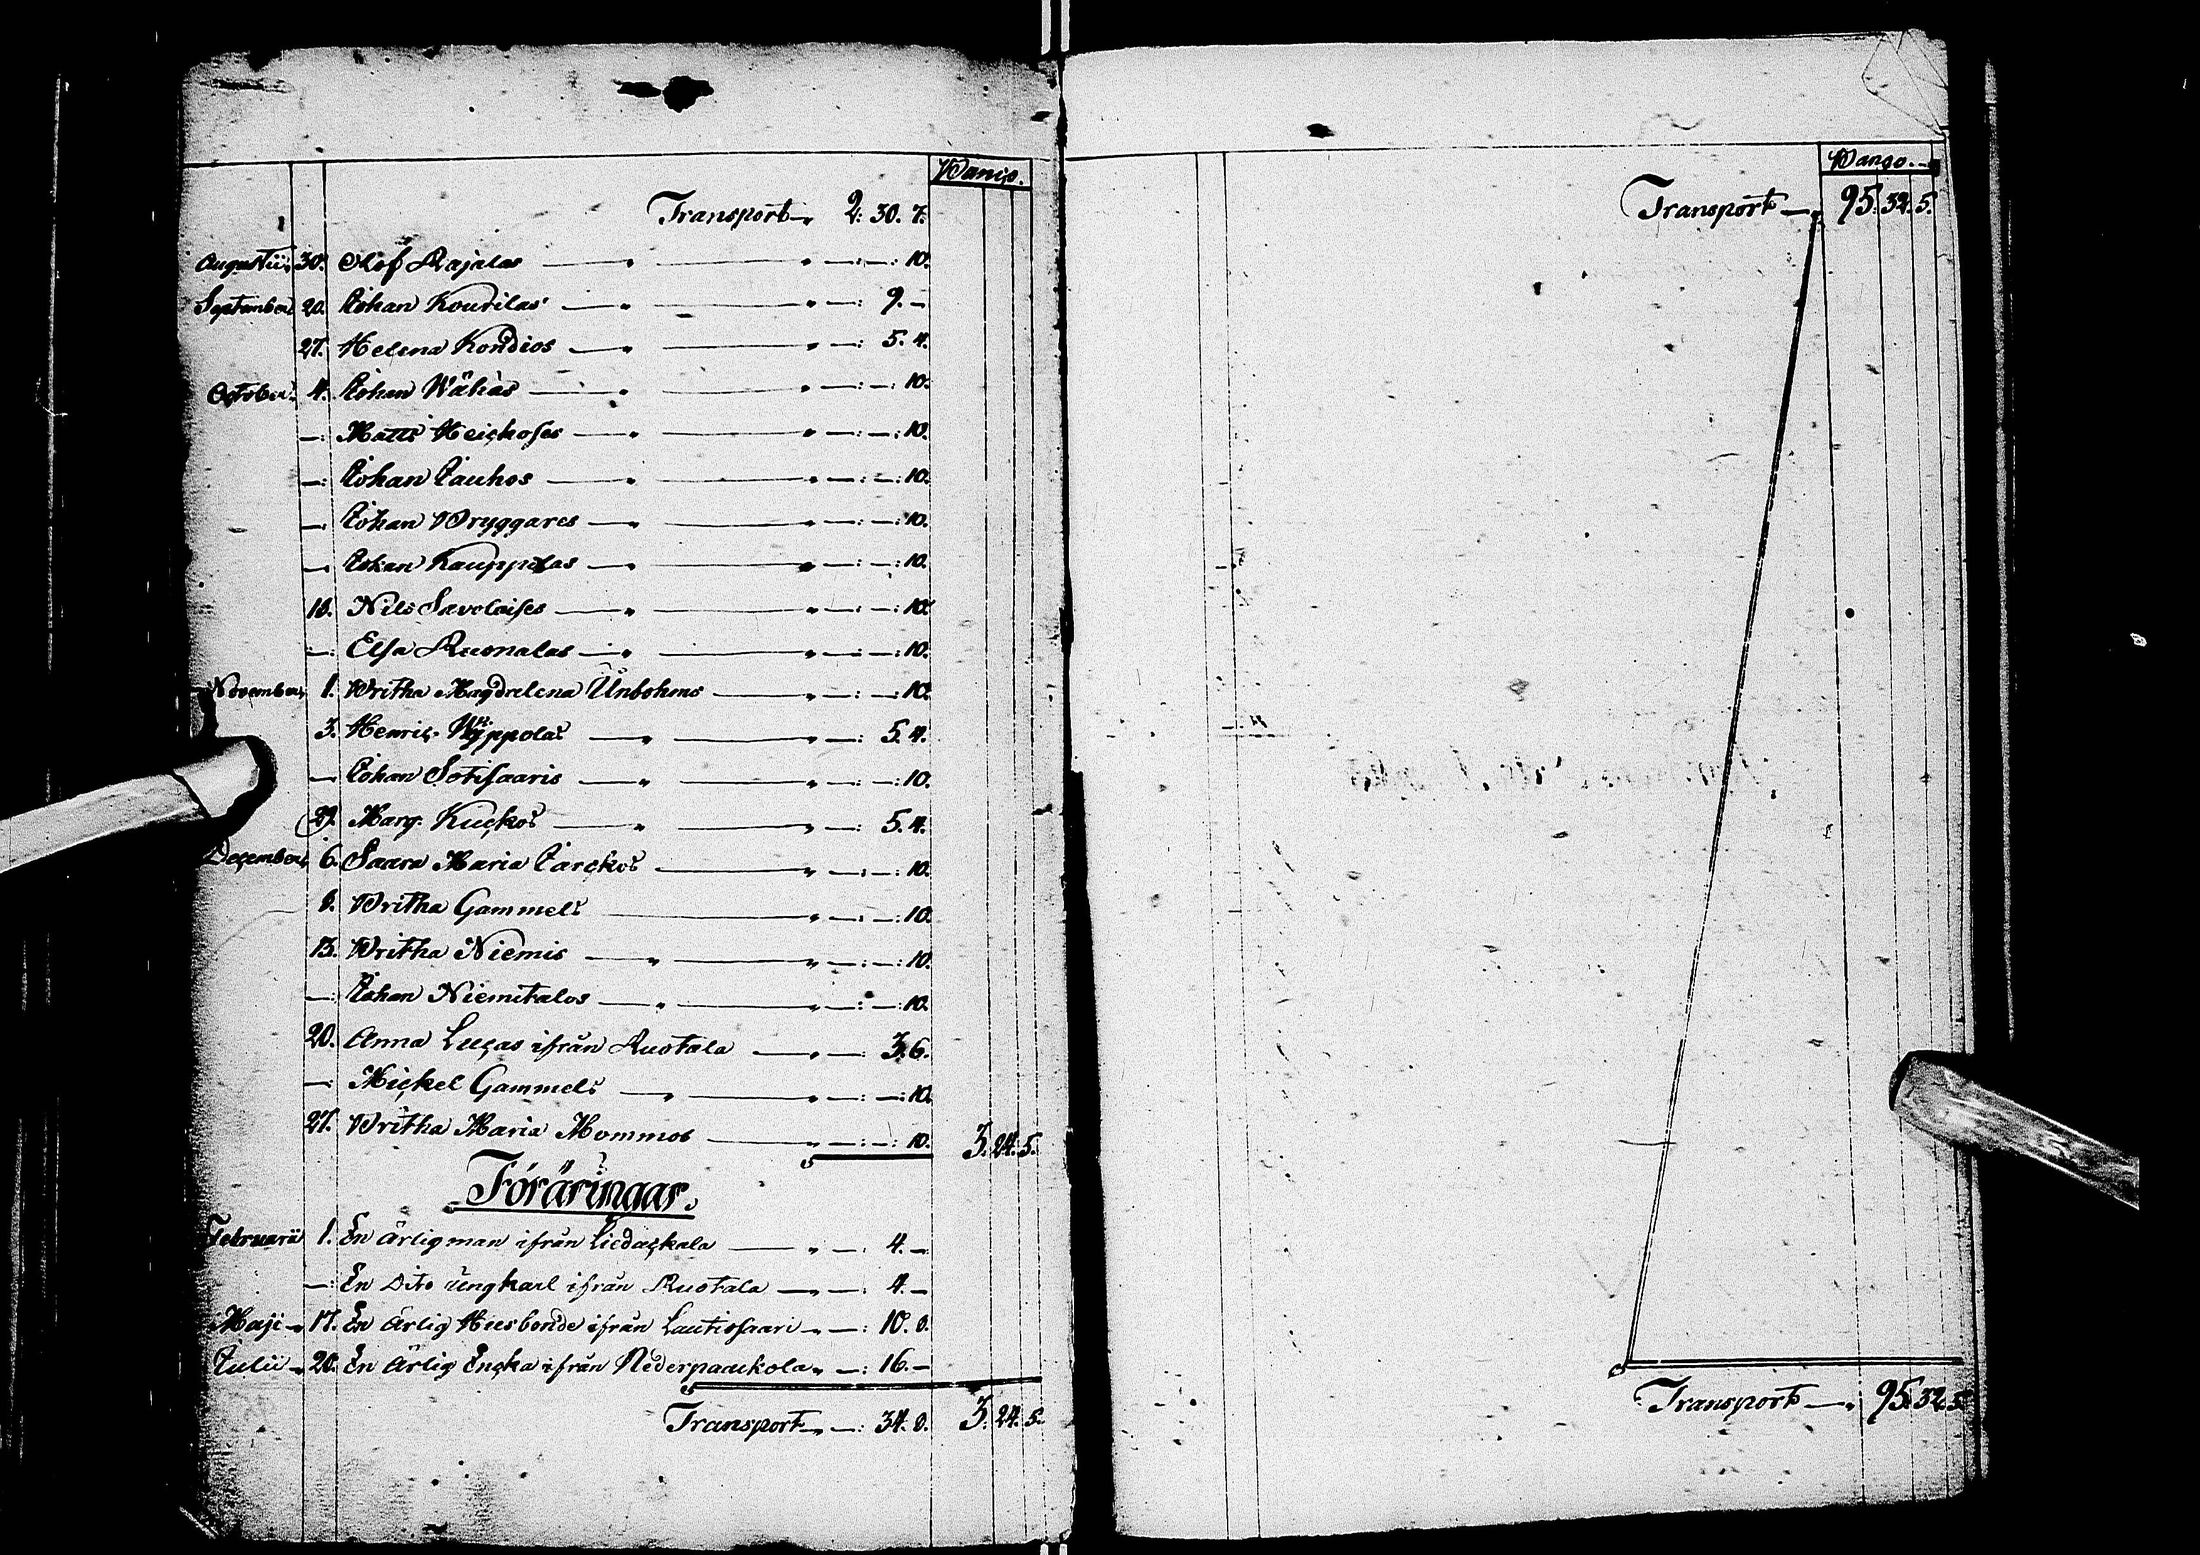 Banco.
Transport 2: 30. 7.
Augusti 30. Olof Rajalas — — : — : 10.
September 20. Johan Kourilas — — : 9. —
27. Helena Kondios — — : 5. 4.
October 4. Johan Wähäs — — : — : 10.
— : Matts Heickoses — — : — : 10.
— : Johan Jauhos — — : — : 10.
— : Johan Bryggares — — : — : 10.
— : Johan Kauppilas — — : — : 10.
18. Nils Savoloises — — : — : 10.
— : Elsa Ruonalas — — : — : 10.
November 1. Britha Magdalena Unbohms — : — : 10.
3. Henric Hyppolas — — : 5. 4.
— : Johan Sotisaaris — — : — : 10.
29. Marg. Kuckos — — : 5. 4.
December 6. Saara Maria Jarckos — : — : 10.
8. Britha Gammels — : — : 10.
13. Britha Niemis — — : — : 10.
— : Johan Niemitalos — — : — : 10.
20. Anna Lucas ifrån Ruotala — : 3. 6.
— : Mickel Gammels — — : — : 10.
27. Britha Maria Mommos — : — : 10. 3. 24. 5.
Föräringar.
Februarii 1. En ärlig man ifrån Liedackala — : 4. —
— : En Dito ungkarl ifrån Ruotala — : 4. —
Maji 17. En Ärlig Husbonde ifrån Lautiosaari — : 10. 8.
Julii 20. En Ärlig Encka ifrån Nederpaackola — : 16. —
Transport — : 34. 8. 3. 24. 5.
Banco.
Transport — 95. 32. 5.
Transport — 95. 32. 5.